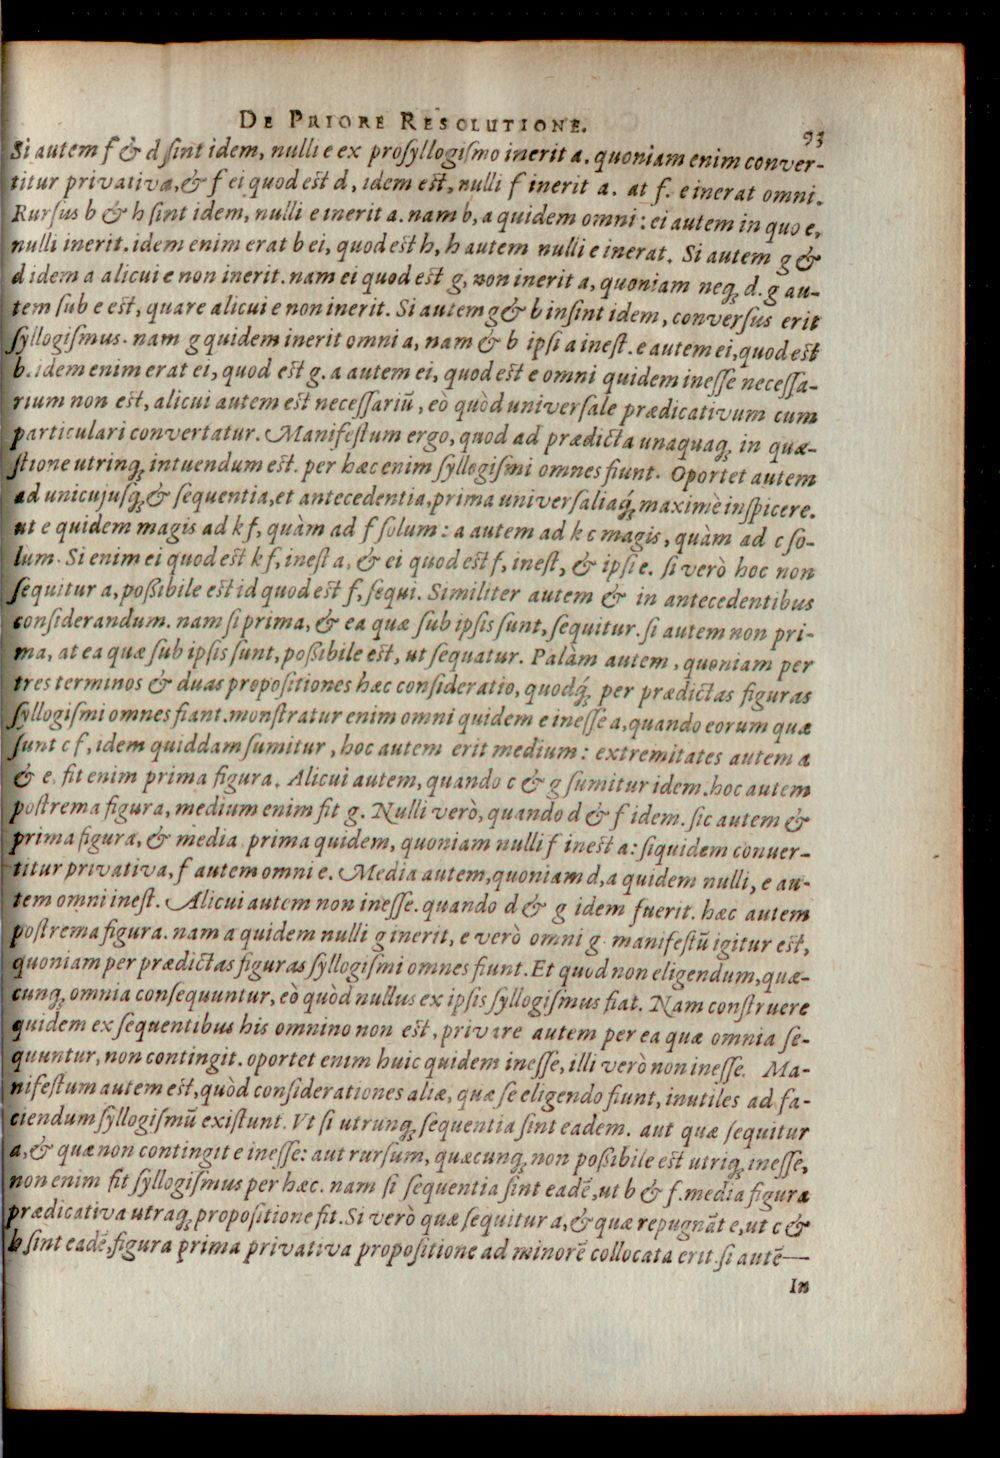 DE PRIORE RESOLUTIONE. 93
Si autem f & d ſint idem, nulli e ex proſyllogiſmo inerit a. quoniam enim conver-
titur privativa, & f ei quod est d, idem est, nulli f inerit a. at f. e inerat omni.
Rurſus b & h ſint idem, nulli e inerit a. nam b, a quidem omni: ei autem in quo e,
nulli inerit. idem enim erat b ei, quod est h, h autem nulli e inerat. Si autem g &
d idem a alicui e non inerit. nam ei quod est g, non inerit a, quoniam neq; d. g au-
tem ſub e est, quare alicui e non inerit. Si autem g & b inſint idem, converſus erit
ſyllogiſmus. nam g quidem inerit omni a, nam & b ipſi a ineſt. e autem ei, quod est
b. idem enim erat ei, quod est g. a autem ei, quod est e omni quidem ineſſe neceſſa-
rium non est, alicui autem est neceſſariũ, eò quòd univerſale prædicativum cum
particulari convertatur. Manifeſtum ergo, quod ad prædicta unaquaq; in quæ-
ſtione utrinq; intuendum est. per hæc enim ſyllogiſmi omnes fiunt. Oportet autem
ad unicujuſq; & ſequentia, et antecedentia, prima univerſaliaq́; maximè inſpicere.
ut e quidem magis ad k f, quàm ad f ſolum: a autem ad k c magis, quàm ad c ſo-
lum. Si enim ei quod est k f, ineſt a, & ei quod est f, ineſt, & ipſi e. ſi verò hoc non
ſequitur a, poßibile est id quod est f, ſequi. Similiter autem & in antecedentibus
conſiderandum. nam ſi prima, & ea quæ ſub ipſis ſunt, ſequitur. ſi autem non pri-
ma, at ea quæ ſub ipſis ſunt, poßibile est, ut ſequatur. Palàm autem, quoniam per
tres terminos & duas propoſitiones hæc conſideratio, quodq́; per prædictas figuras
ſyllogiſmi omnes fiant. monſtratur enim omni quidem e ineſſe a, quando eorum quæ
ſunt c f, idem quiddam ſumitur, hoc autem erit medium: extremitates autem a
& e. fit enim prima figura. Alicui autem, quando c & g ſumitur idem. hoc autem
poſtrema figura, medium enim fit g. Nulli verò, quando d & f idem. ſic autem &
prima figura, & media. prima quidem, quoniam nulli f inest a: ſiquidem conver-
titur privativa, f autem omni e. Media autem, quoniam d, a quidem nulli, e au-
tem omni ineſt. Alicui autem non ineſſe. quando d & g idem fuerit. hæc autem
poſtrema figura. nam a quidem nulli g inerit, e verò omni g. manifeſtũ igitur est,
quoniam per prædictas figuras ſyllogiſmi omnes fiunt. Et quod non eligendum, quæ-
cunq; omnia conſequuntur, eò quòd nullus ex ipſis ſyllogiſmus fiat. Nam conſtruere
quidem ex ſequentibus his omnino non est, privare autem per ea quæ omnia ſe-
quuntur, non contingit. oportet enim huic quidem ineſſe, illi verò non ineſſe. Ma-
nifeſtum autem est, quòd conſiderationes aliæ, quæ ſe eligendo fiunt, inutiles ad fa-
ciendum ſyllogiſmũ existunt. Vt ſi utrunq; ſequentia ſint eadem. aut quæ ſequitur
a, & quæ non contingit e ineſſe: aut rurſum, quæcunq; non poßibile est utriq; ineſſe,
non enim fit ſyllogiſmus per hæc. nam ſi ſequentia ſint eadẽ, ut b & f. media figura
prædicativa utraq; propoſitione fit. Si verò quæ ſequitur a, & quæ repugnãt e, ut c &
h ſint eadẽ, figura prima privativa propoſitione ad minorẽ collocata erit. ſi autẽ—
In